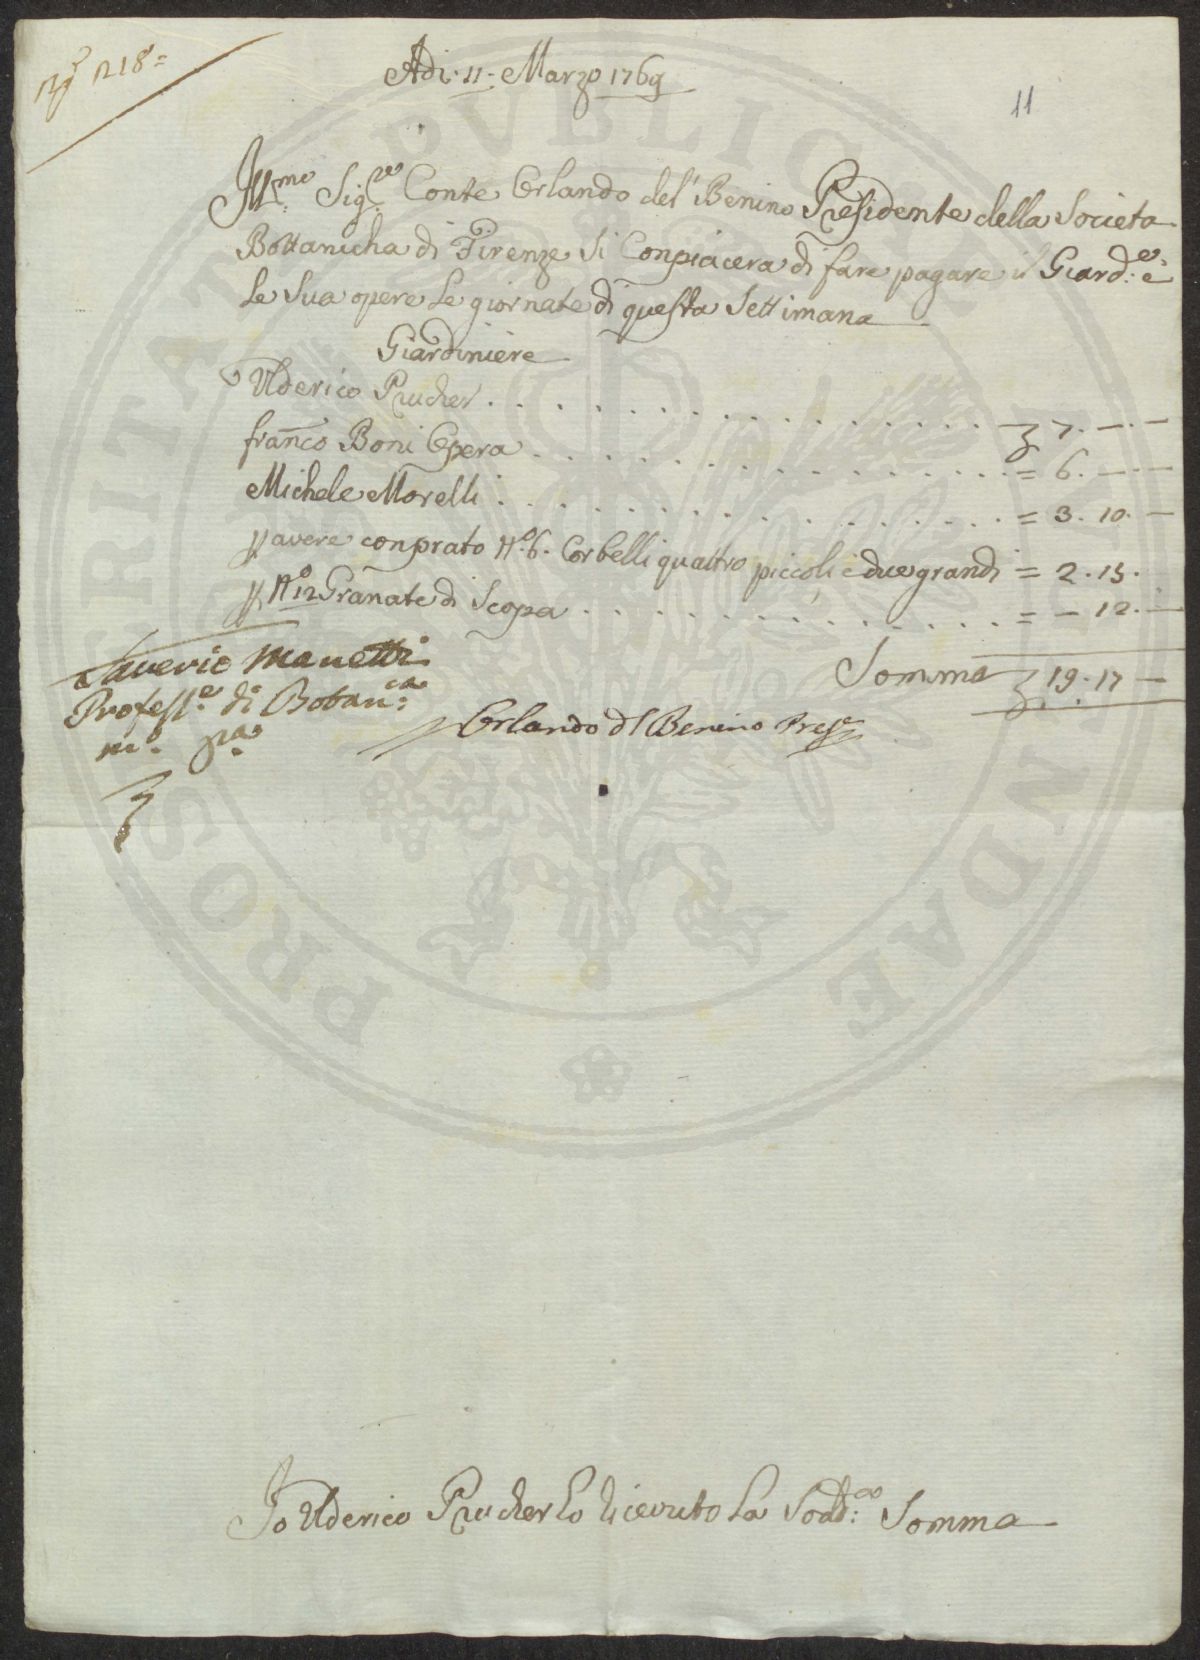 218=
Adi. 11. Marzo 1769
11
Ill.mo Sig.re Conte Orlando del' Benino Presidente della Societa
Bottanicha di Firenze Si Conpiacera di fare pagare il Giard.e: e
le Sua opere le giornate di questa Settimana
Giardiniere
Ulderico Prucher . . . . . . . . . . . . . . . 7. — . —
Franco Boni Opera . . . . . . . . . . . . . . . = 6. — —
Michele Morelli . . . . . . . . . . . . . . . = 3. 10. —
p avere conprato N.o 6. Corbelli quattro piccoli e due grandi = 2. 15.
p N.o 12 Granate di Scopa . . . . . . . . . . . . = — 12. —
Somma 19. 17 —
Saverio Manetti
Profess.e di Botan.ca
m.o p.a
Orlando del Benino Pres.e
Io Ulderico Prucher ho ricevuto la Sodd.a Somma
PROSPERITATI PVBLICAE AVGENDAE